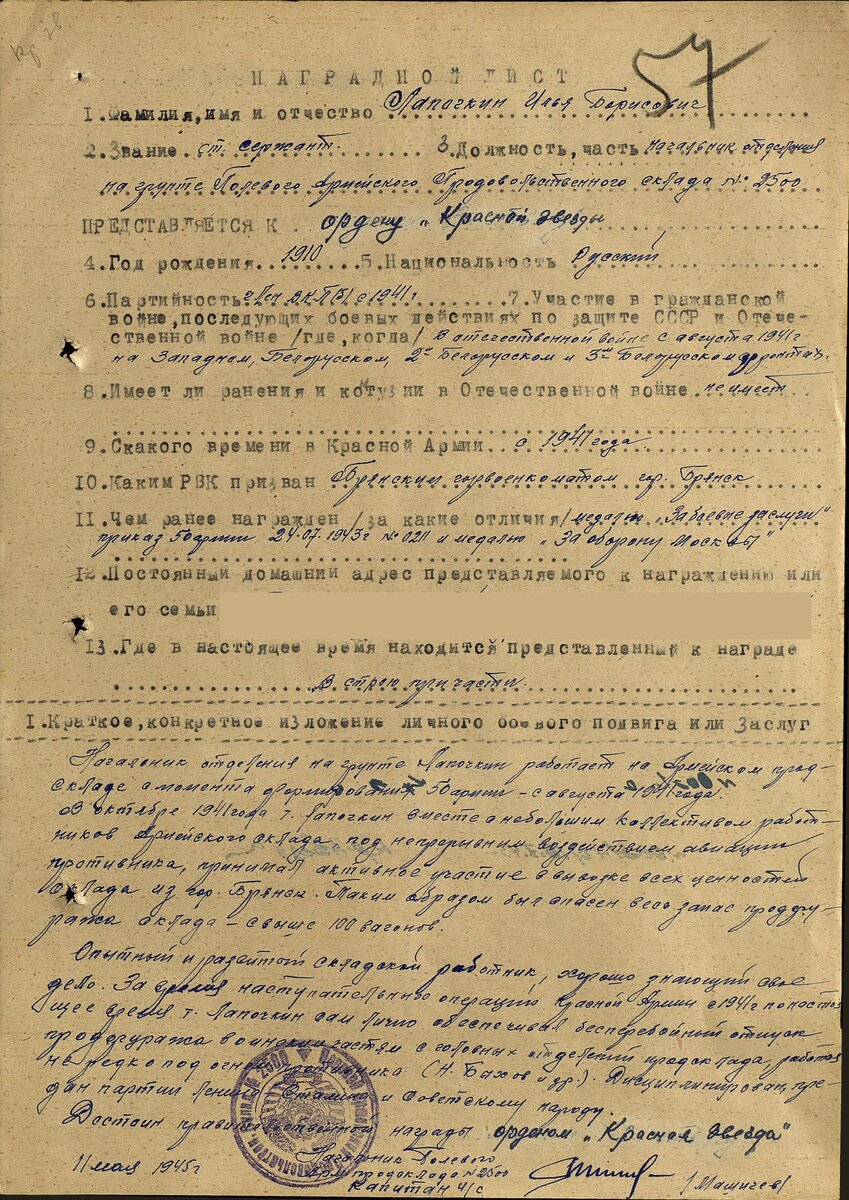 57
НАГРАДНОЙ ЛИСТ
1. Фамилия, имя и отчество Лапочкин Илья Борисович
2. Звание ст. сержант. 3. Должность, часть начальник отделения
на грунте Полевого Армейского Продовольственного склада № 2500
ПРЕДСТАВЛЯЕТСЯ К ордену „Красной звезды
4. Год рождения 1910 5. Национальность Русский
6. Партийность член ВКП(б) с 1941 г. 7. Участие в гражданской
войне, последующих боевых действиях по защите СССР и Отече-
ственной войне /где, когда/ В отечественной войне с августа 1941 г
на Западном, Белорусском, 2ом Белорусском и 3ем Белорусском фронтах.
8. Имеет ли ранения и котузии в Отечественной войне не имеет
9. Скакого времени в Красной Армии с 1941 года
10. Каким РВК призван Брянским горвоенкоматом гор. Брянск
11. Чем ранее награжден /за какие отличия/ медалью „За боевые заслуги"
приказ 50 армии 24.07.1943 г № 0211 и медалью „За оборону Москвы"
12. Постоянный домашний адрес представляемого к награждению или
его семьи
13. Где в настоящее время находится представленный к награде
В строю при части
I. Краткое, конкретное изложение личного боевого подвига или Заслуг
Начальник отделения на грунте Лапочкин работает на Армейском прод-
складе с момента формирования 50 армии – с августа 1941 года.
В октябре 1941 года т. Лапочкин вместе с небольшим коллективом работ-
ников Армейского склада, под непрерывным воздействием авиации
противника, принимал активное участие в вывозке всех ценностей
склада из гор. Брянск. Таким образом был спасен весь запас продфу-
ража склада – свыше 100 вагонов.
Опытный и развитой складской работник, хорошо знающий свое
дело. За время наступательных операций Красной Армии с 1941 г по настоя
щее время т. Лапочкин сам лично обеспечивал бесперебойный отпуск
продфуража воинским частям с головных отделений продсклада, работая
не редко под огнем противника (Н. Бахов и др.). Дисциплинирован, пре-
дан партии Ленина Сталина и Советскому народу.
Достоин правительственной награды орденом „Красная звезда"
11 мая 1945 г Начальник Полевого
Арм продсклада № 2500
Капитан и/с /Машичев/